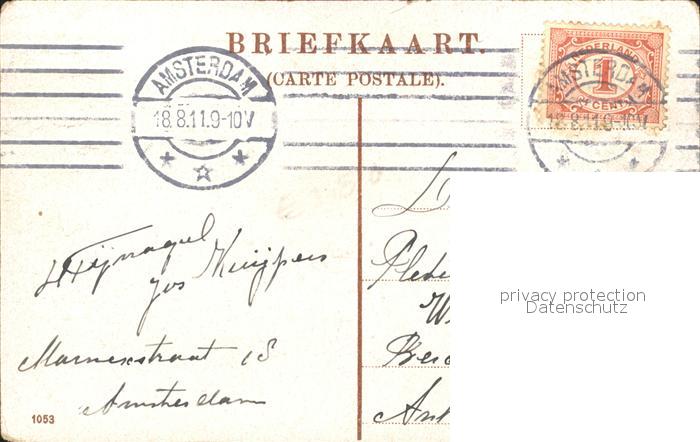 BRIEFKAART.
(CARTE POSTALE).
AMSTERDAM
18.8.11.9-10V
NEDERLAND
1
CENT
AMSTERDAM
18.8.11.9-10V
privacy protection
Datenschutz
Jos Kuijpers
Marnixstraat 18
Amsterdam
1053